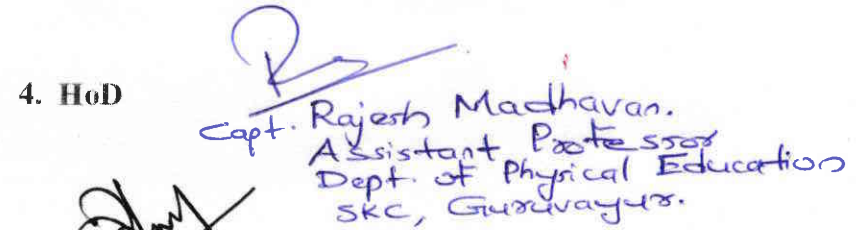 4. HoD
Capt. Rajesh Madhavan.
Assistant Professor
Dept. of Physical Education
SKC, Guruvayur.